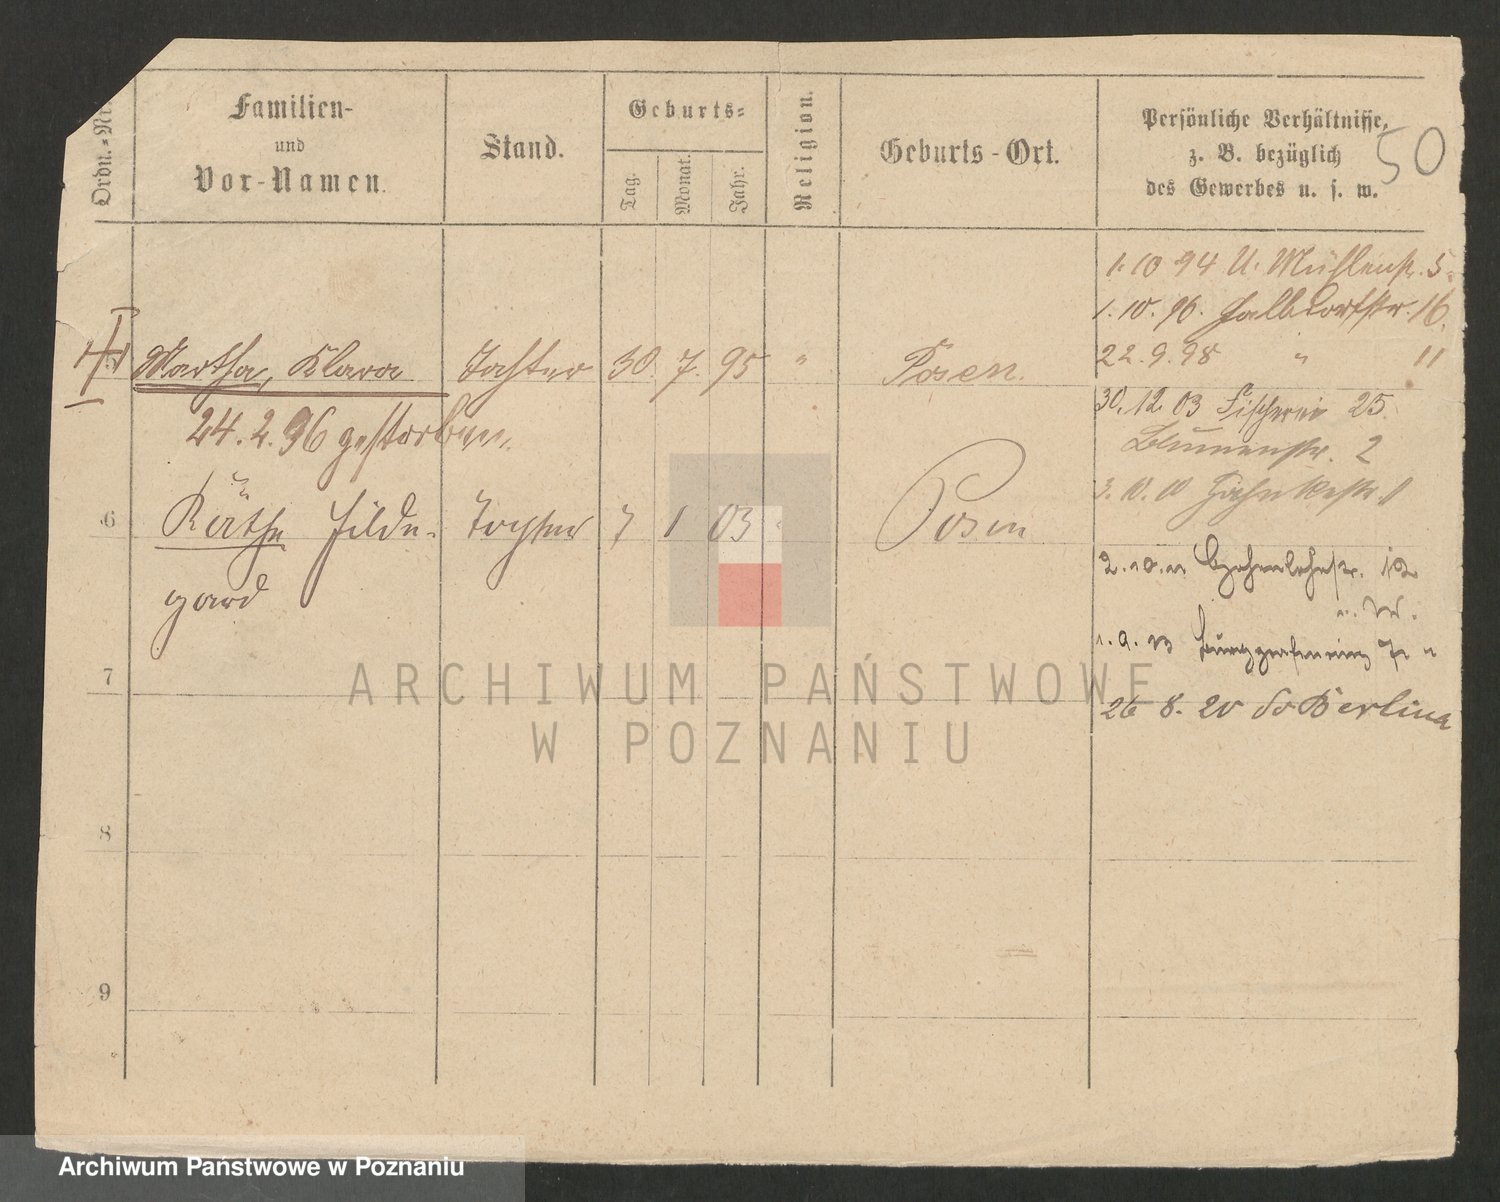 Ordn.-Nr.
Familien-
und
Vor-Namen.
Stand.
Geburts-
Tag.
Monat.
Jahr.
Religion.
Geburts-Ort.
Persönliche Verhältnisse,
z. B. bezüglich
des Gewerbes u. s. w.
50
1. 10 94 U. Mühlenstr. 5.
1. 10. 96. Halbdorfstr. 16.
Martha, Klara Tochter 30. 7. 95 " Posen.
22. 9. 98 " 11
24. 2. 96 gestorben.
30. 12. 03 Fischerei 25.
Blumenstr. 2
3. 10. 10
6 Käthe Hilde- Tochter 7 1 03 Posen
gard
2. 10. 11 12
1. 9. 13
7
26 8. 20 Berlin
8
9
ARCHIWUM PAŃSTWOWE
W POZNANIU
Archiwum Państwowe w Poznaniu